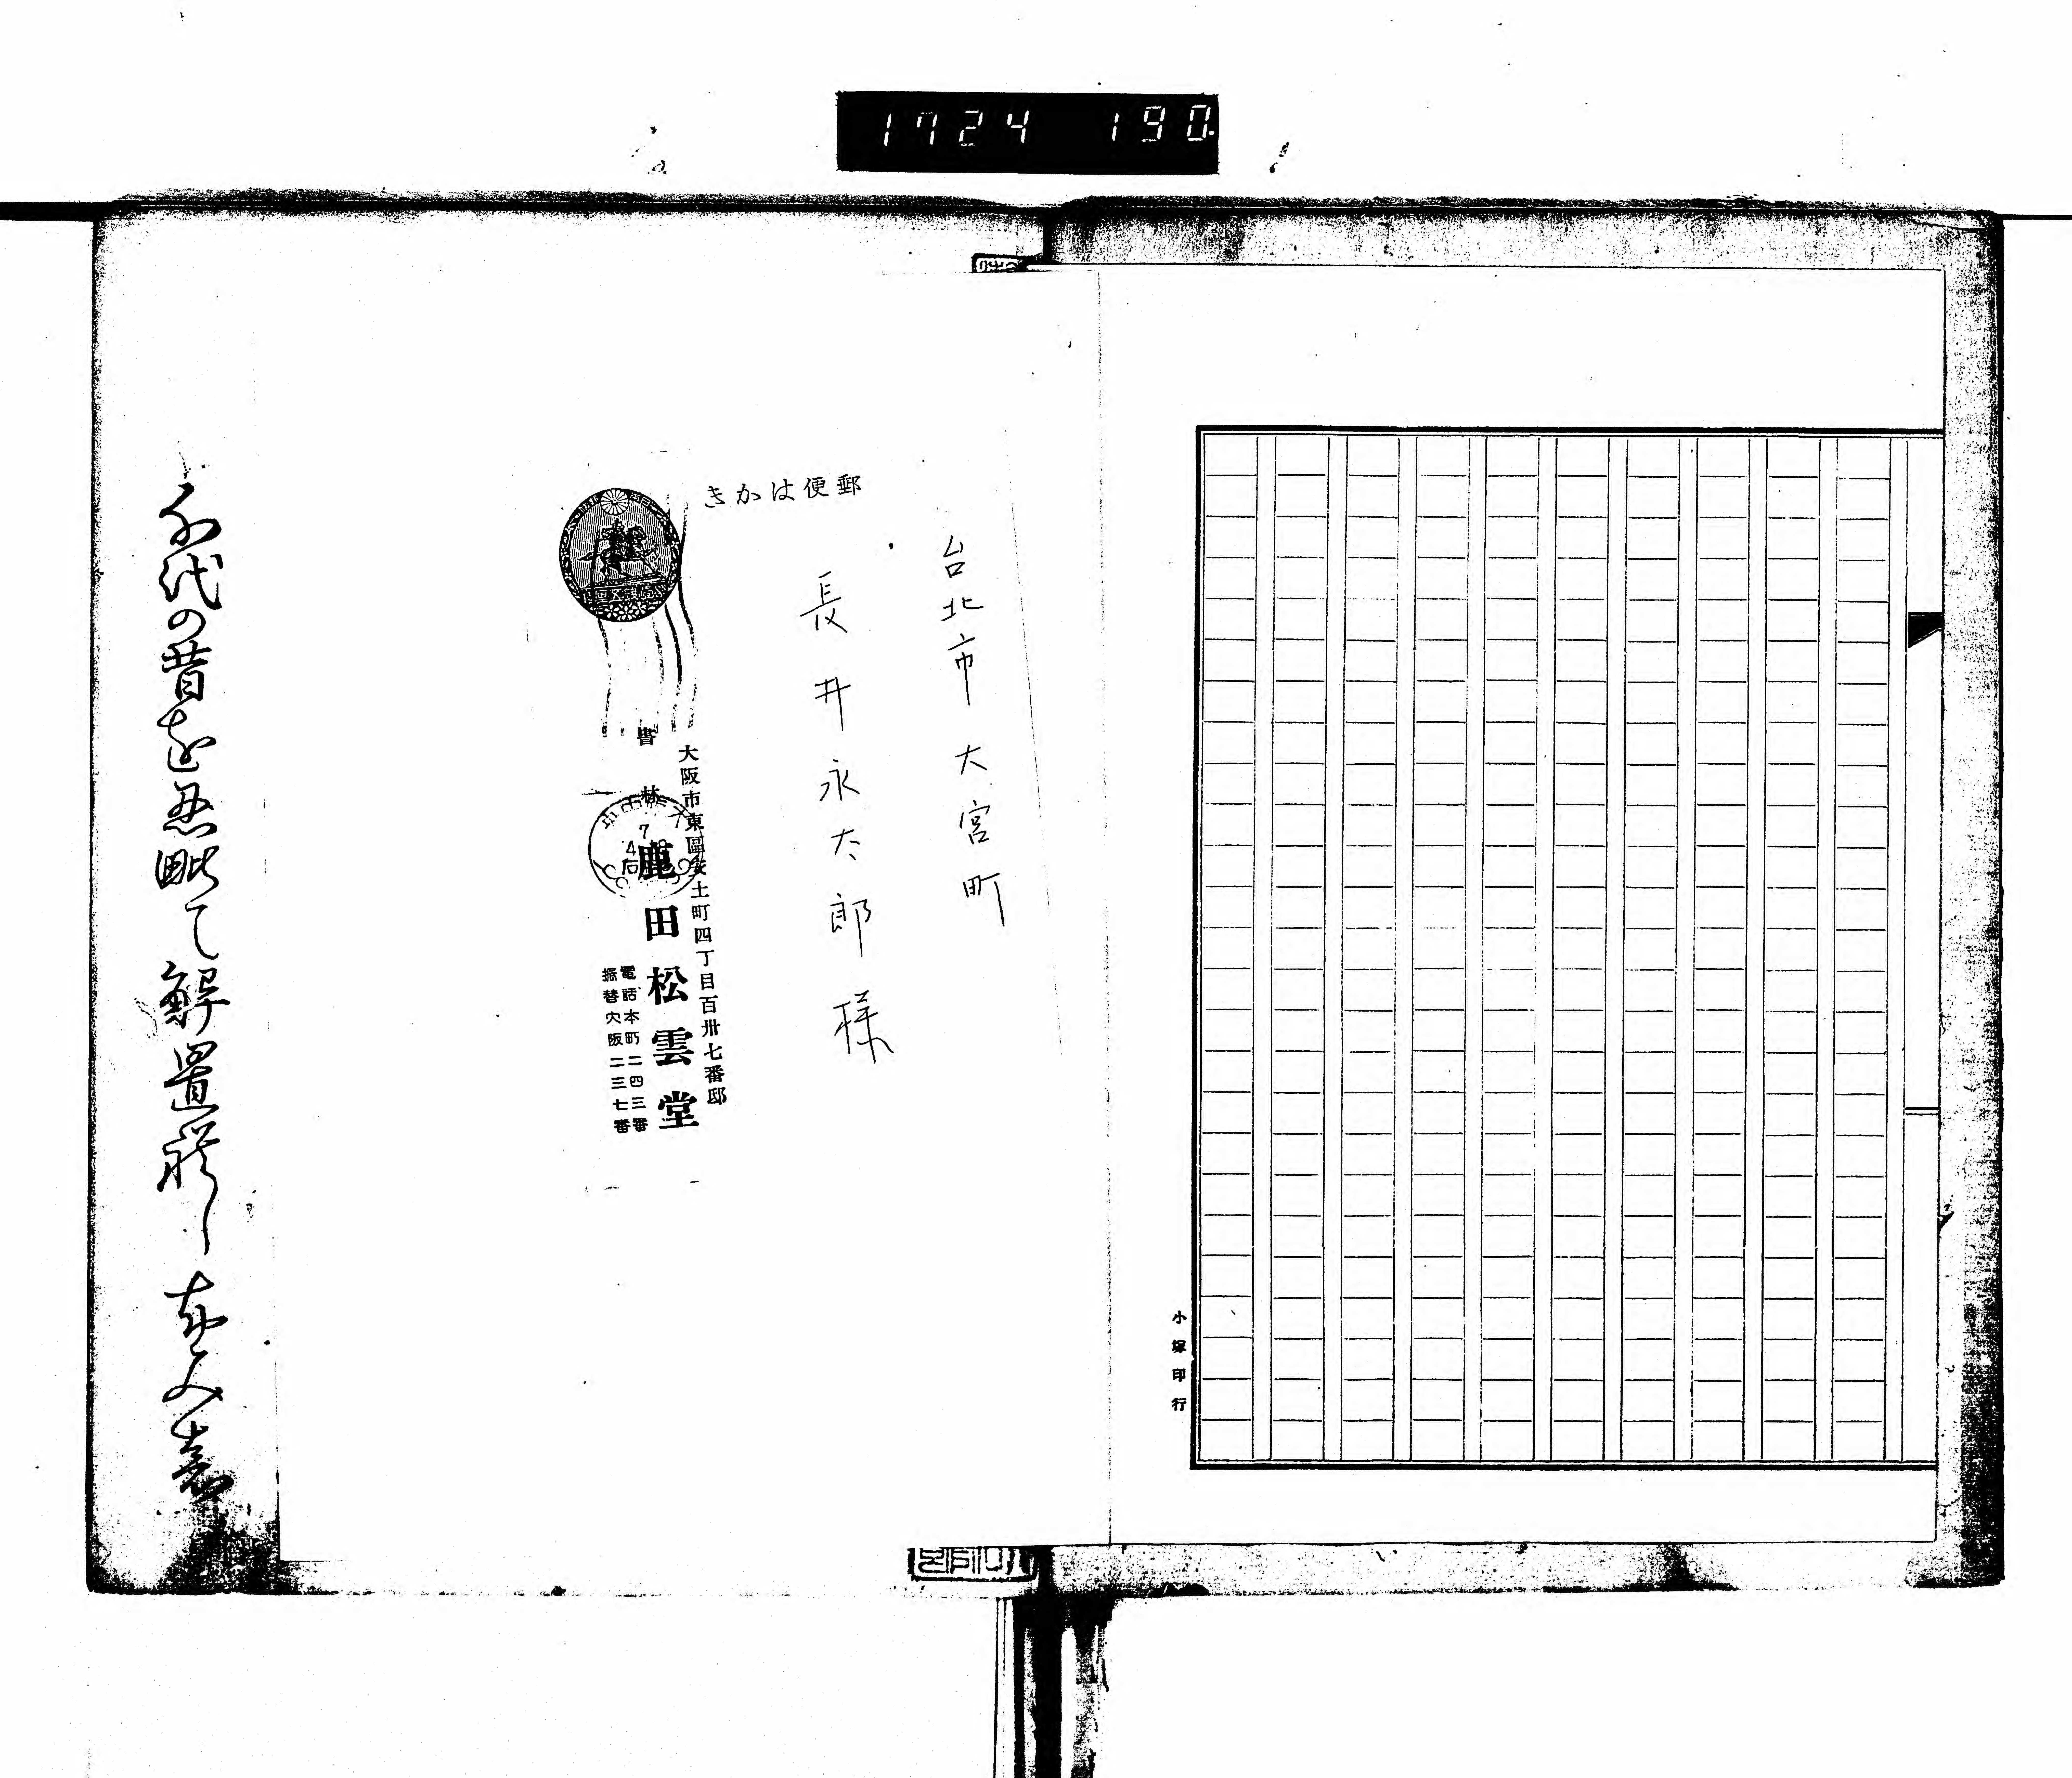 1724 190
小塚印行
郵便はかき
台北市大宮町
長井永太郎様
大阪市東區安土町四丁目百卅七番邸
書林 鹿田松雲堂
電話本町二四三番
振替大阪二三七番
代の昔を
て解置